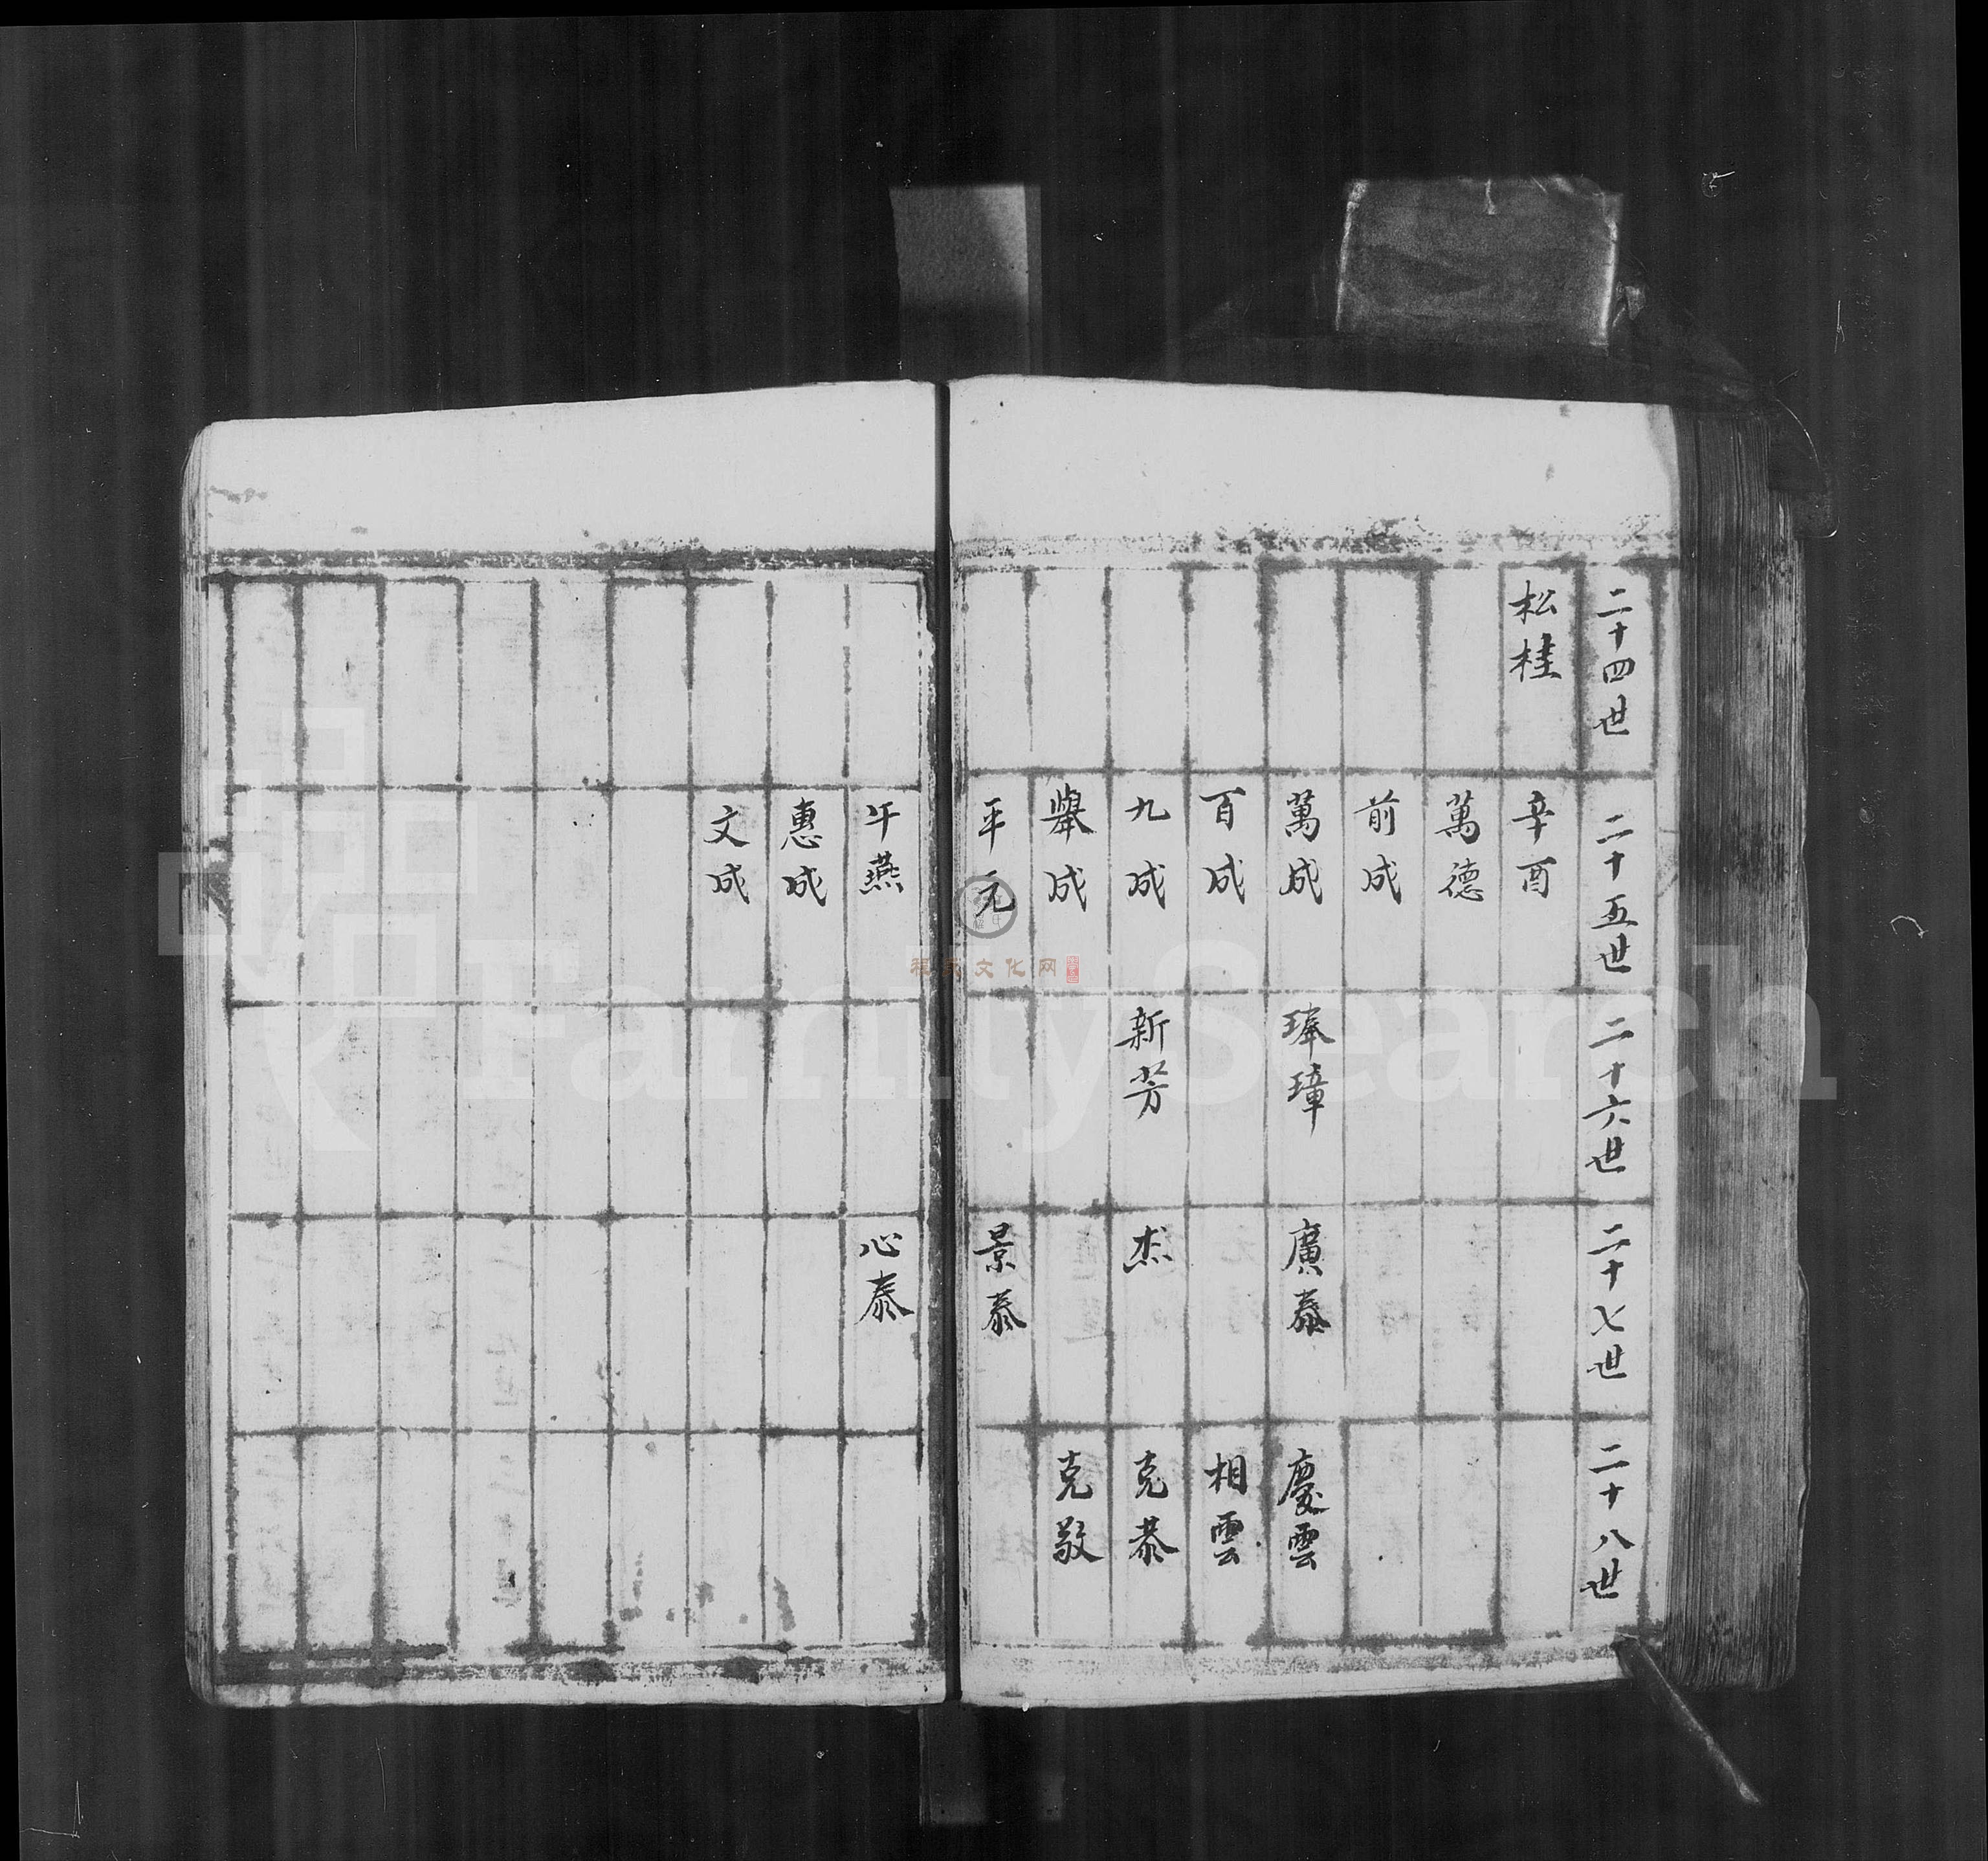 二十四世
二十五世
二十六世
二十七世
二十八世
松桂
辛酉
萬德
前成
萬成
琫璋
廣泰
慶雲
百成
相雲
九成
新芳
杰
克恭
舉成
克敬
平元
景泰
午燕
心泰
惠成
文成
程氏文化网
FamilySearch